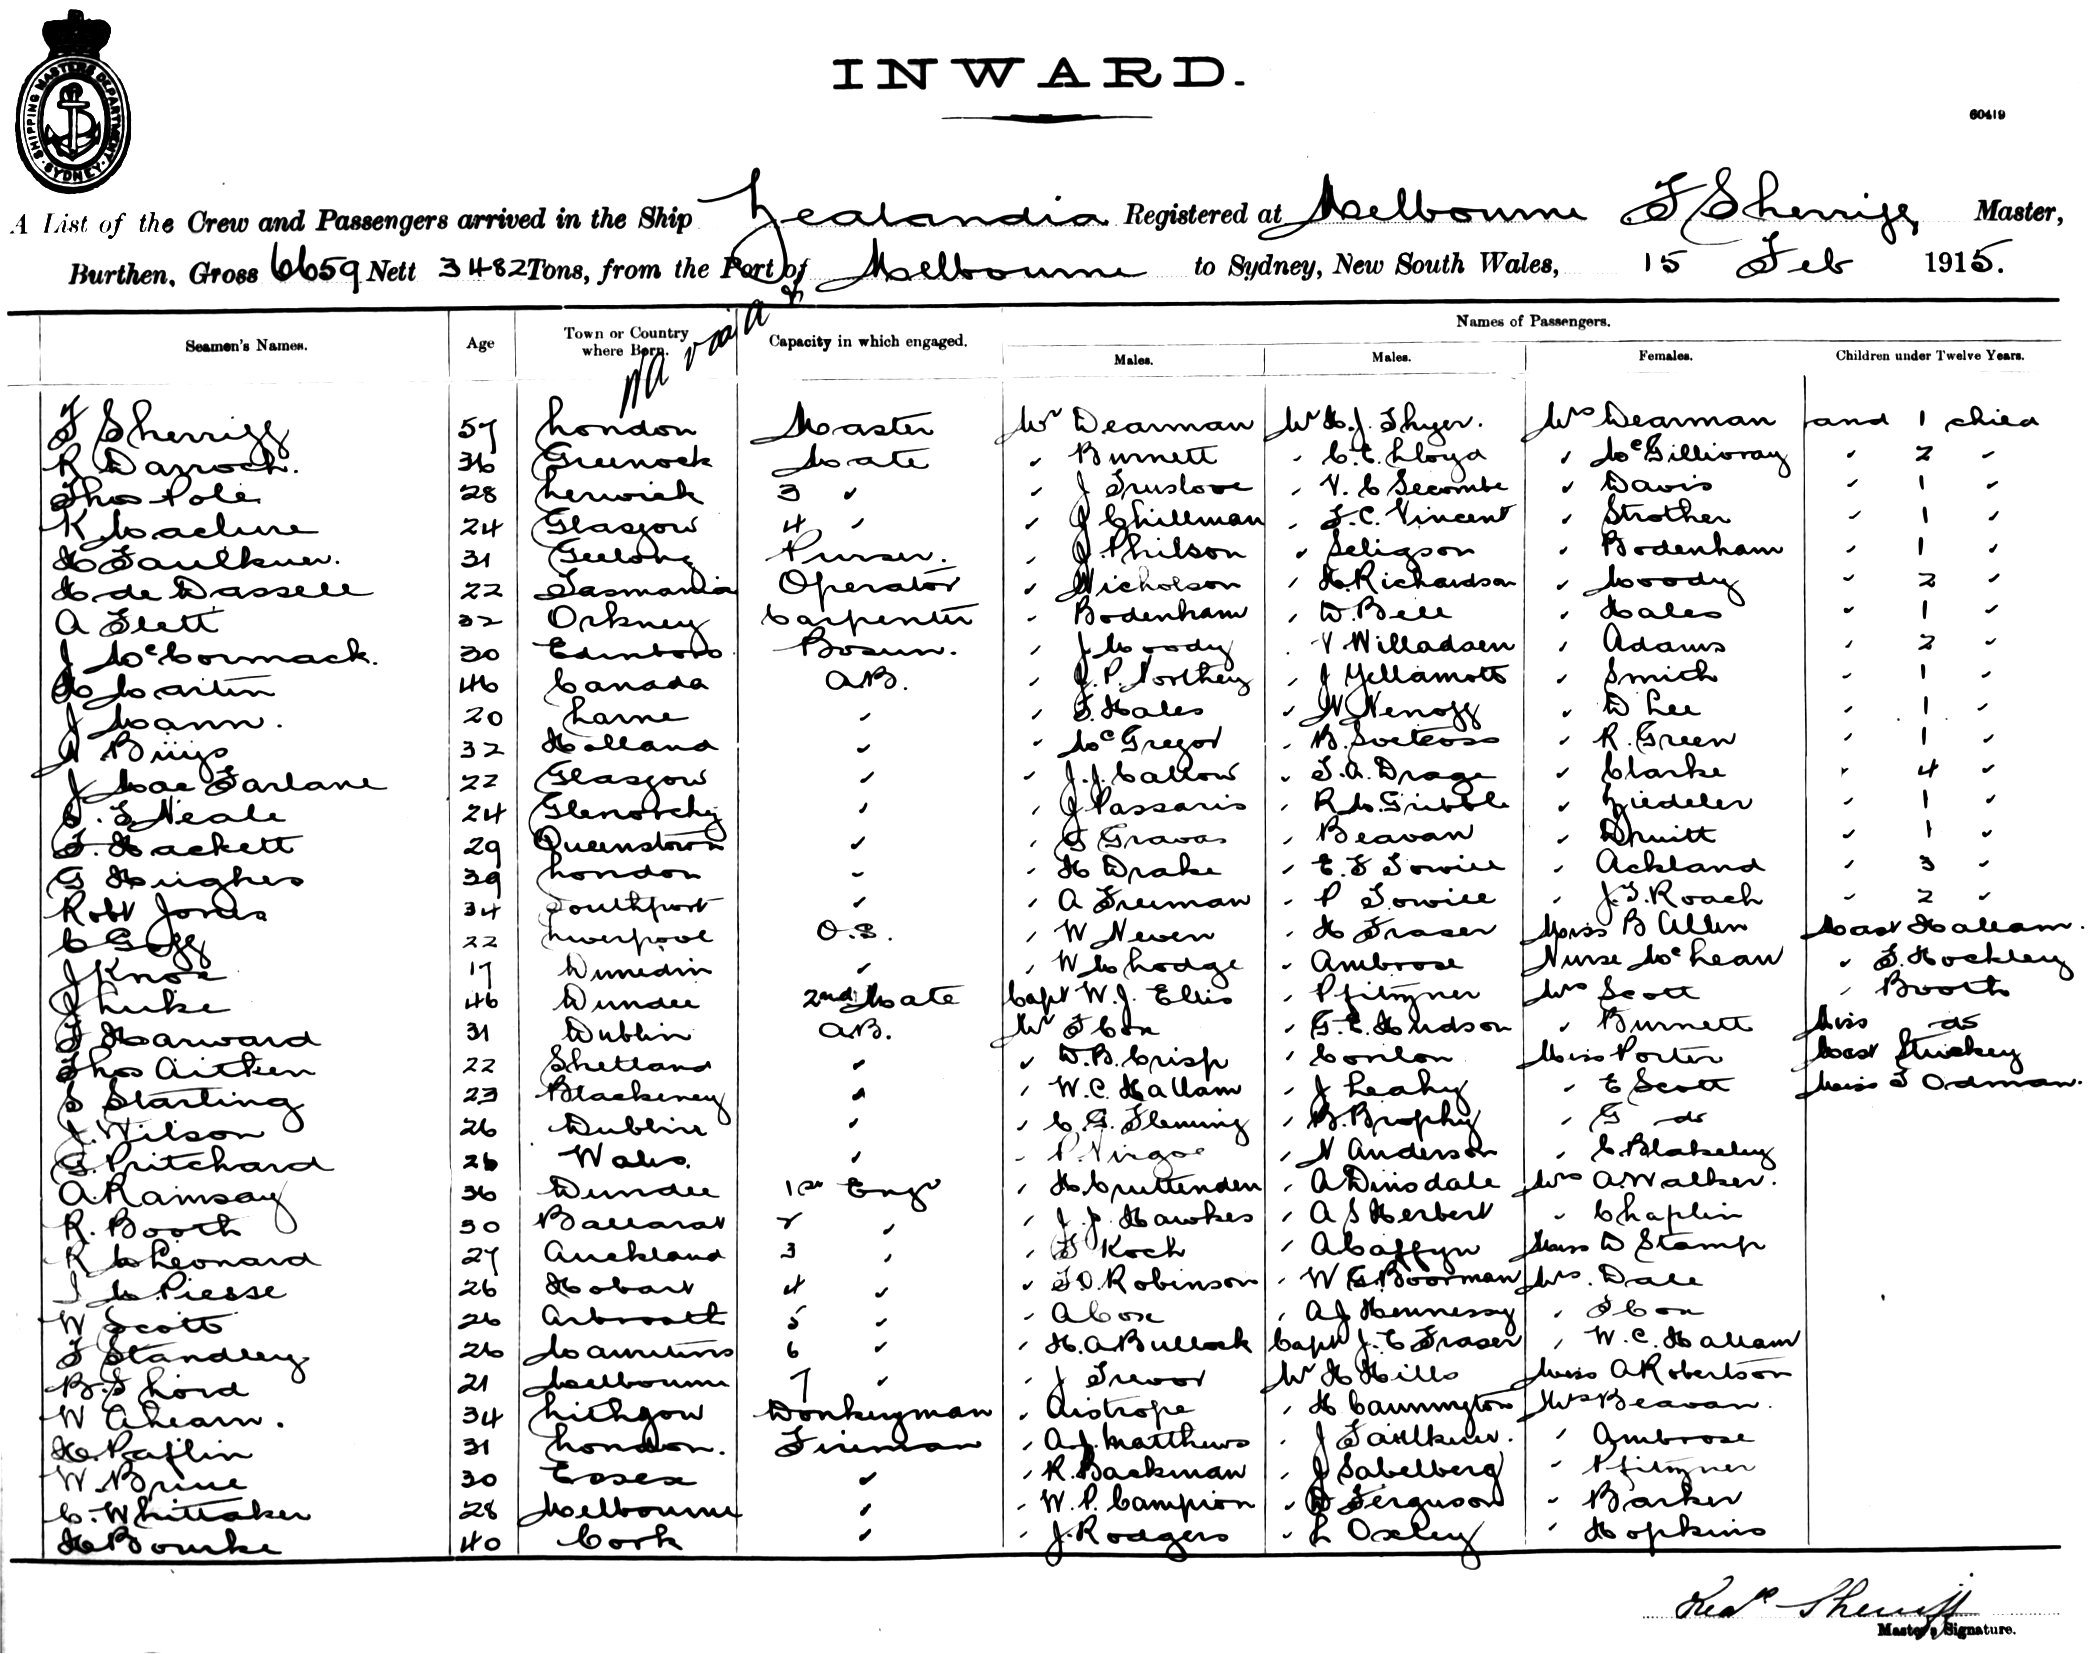 SHIPPING MASTERS DEPARTMENT SYDNEY
INWARD.
60419
A List of the Crew and Passengers arrived in the Ship Zealandia Registered at Melbourne F Sherriff Master,
Burthen, Gross 6659 Nett 3482 Tons, from the Port of Melbourne to Sydney, New South Wales, 15 Feb 1915.
WA via &
Names of Passengers.
Seamen's Names. Age Town or Country where Born. Capacity in which engaged. Males. Males. Females. Children under Twelve Years.
F Sherriff 57 London Master Mr Dearman Mr H.J. Thyer. Mrs Dearman and 1 child
R Darroch. 36 Greenock Mate " Burnett " C.E. Lloyd " McGillivray " 2 "
Thos Pole 28 Lerwick 3 " " J Truslove " V. C Secombe " Davis " 1 "
R Maclure 24 Glasgow 4 " " J Chillman " F.C. Vincent " Strother " 1 "
H Faulkner. 31 Geelong Purser. " J Philson " Seligson " Bodenham " 1 "
H de Dassell 22 Tasmania Operator " Nicholson " H. Richardson " Moody " 2 "
A Flett 32 Orkney Carpenter " Bodenham " D. Bell " Hales " 1 "
J McCormack. 30 Edinboro Bosun. " J. Moody " V Willadsen " Adams " 2 "
H Martin 46 Canada A.B. " J. P. Northey " J Yellamotts " Smith " 1 "
J Mann. 20 Larne " " F. Hales " N Nenoff " D Lee " 1 "
N Büijs 32 Holland " " McGregor " B. " R. Green " 1 "
J MacFarlane 22 Glasgow " " J. J. Callow " F. A. Drage " Clarke " 4 "
S. F Neale 24 Glenorchy " " J Passaris " R M. Gribble " Ziedeler " 1 "
F. Hackett 29 Queenstown " " G Gravas " Beavan " Druitt " 1 "
G Hughes 39 London " " H Drake " E. F Towill " Ackland " 3 "
Robt Jones 34 Southport " " A Freeman " P Towill " J. F. Roach " 2 "
C Gegg 22 Liverpool O.S. " W Neven " H Fraser Miss B Allen Mast Hallam.
J Knox 17 Dunedin " " W M Lodge " Ambrose Nurse McLean " F. Hockley
J Luke 46 Dundee 2nd Mate Capt W. J. Ellis " Pfitzner Mrs Scott " Booth
F Harward 31 Dublin A.B. Mr F Cox " G. E. Hudson " Burnett Miss do
Thos Aitken 22 Shetland " " D. B. Crisp " Conlon Miss Porter Mast Stuckey
S Starling 23 Blackeney " " W. C. Hallam " J Leahy " E Scott Miss F Odman.
J. Wilson 26 Dublin " " C. G. Fleming " B. Brophy " G do
G. Pritchard 26 Wales. " " P. Virgoe " N Anderson " C Blakeley
A Ramsay 36 Dundee 1st Engr " H. Cruttenden " A Dinsdale Mrs A. Walker.
R. Booth 30 Ballarat 2 " " J. J. Hawkes " A S Herbert " Chaplin
R M Leonard 27 Auckland 3 " " F Koch " A Caffyn Miss D Stamp
J M Piesse 26 Hobart 4 " " F. O. Robinson " W G. Boorman Mrs. Dale
W Scott 26 Arbroath 5 " " A Cox " A J Hennessy " F Cox
F Standley 26 Mauritius 6 " " H. A Bullock Capt J. E Fraser " W. C. Hallam
B. S Lord 21 Melbourne 7 " " J Trevor Mr H Hills Miss A Robertson
W Ahearn. 34 Lithgow Donkeyman " Aistrope " H Cannington Mrs Beavan.
H. Paflin 31 London. Fireman " A. J. Matthews " J Faulkner. " Ambrose
W. Brine 30 Essex " " R. Backman " J Sabelberg " Pfitzner
C. Whittaker 28 Melbourne " " W. P. Campion " D Ferguson " Barker
H Bourke 40 Cork " " J. Rodgers " L Oxley " Hopkins
Fredk Sherriff
Master's Signature.